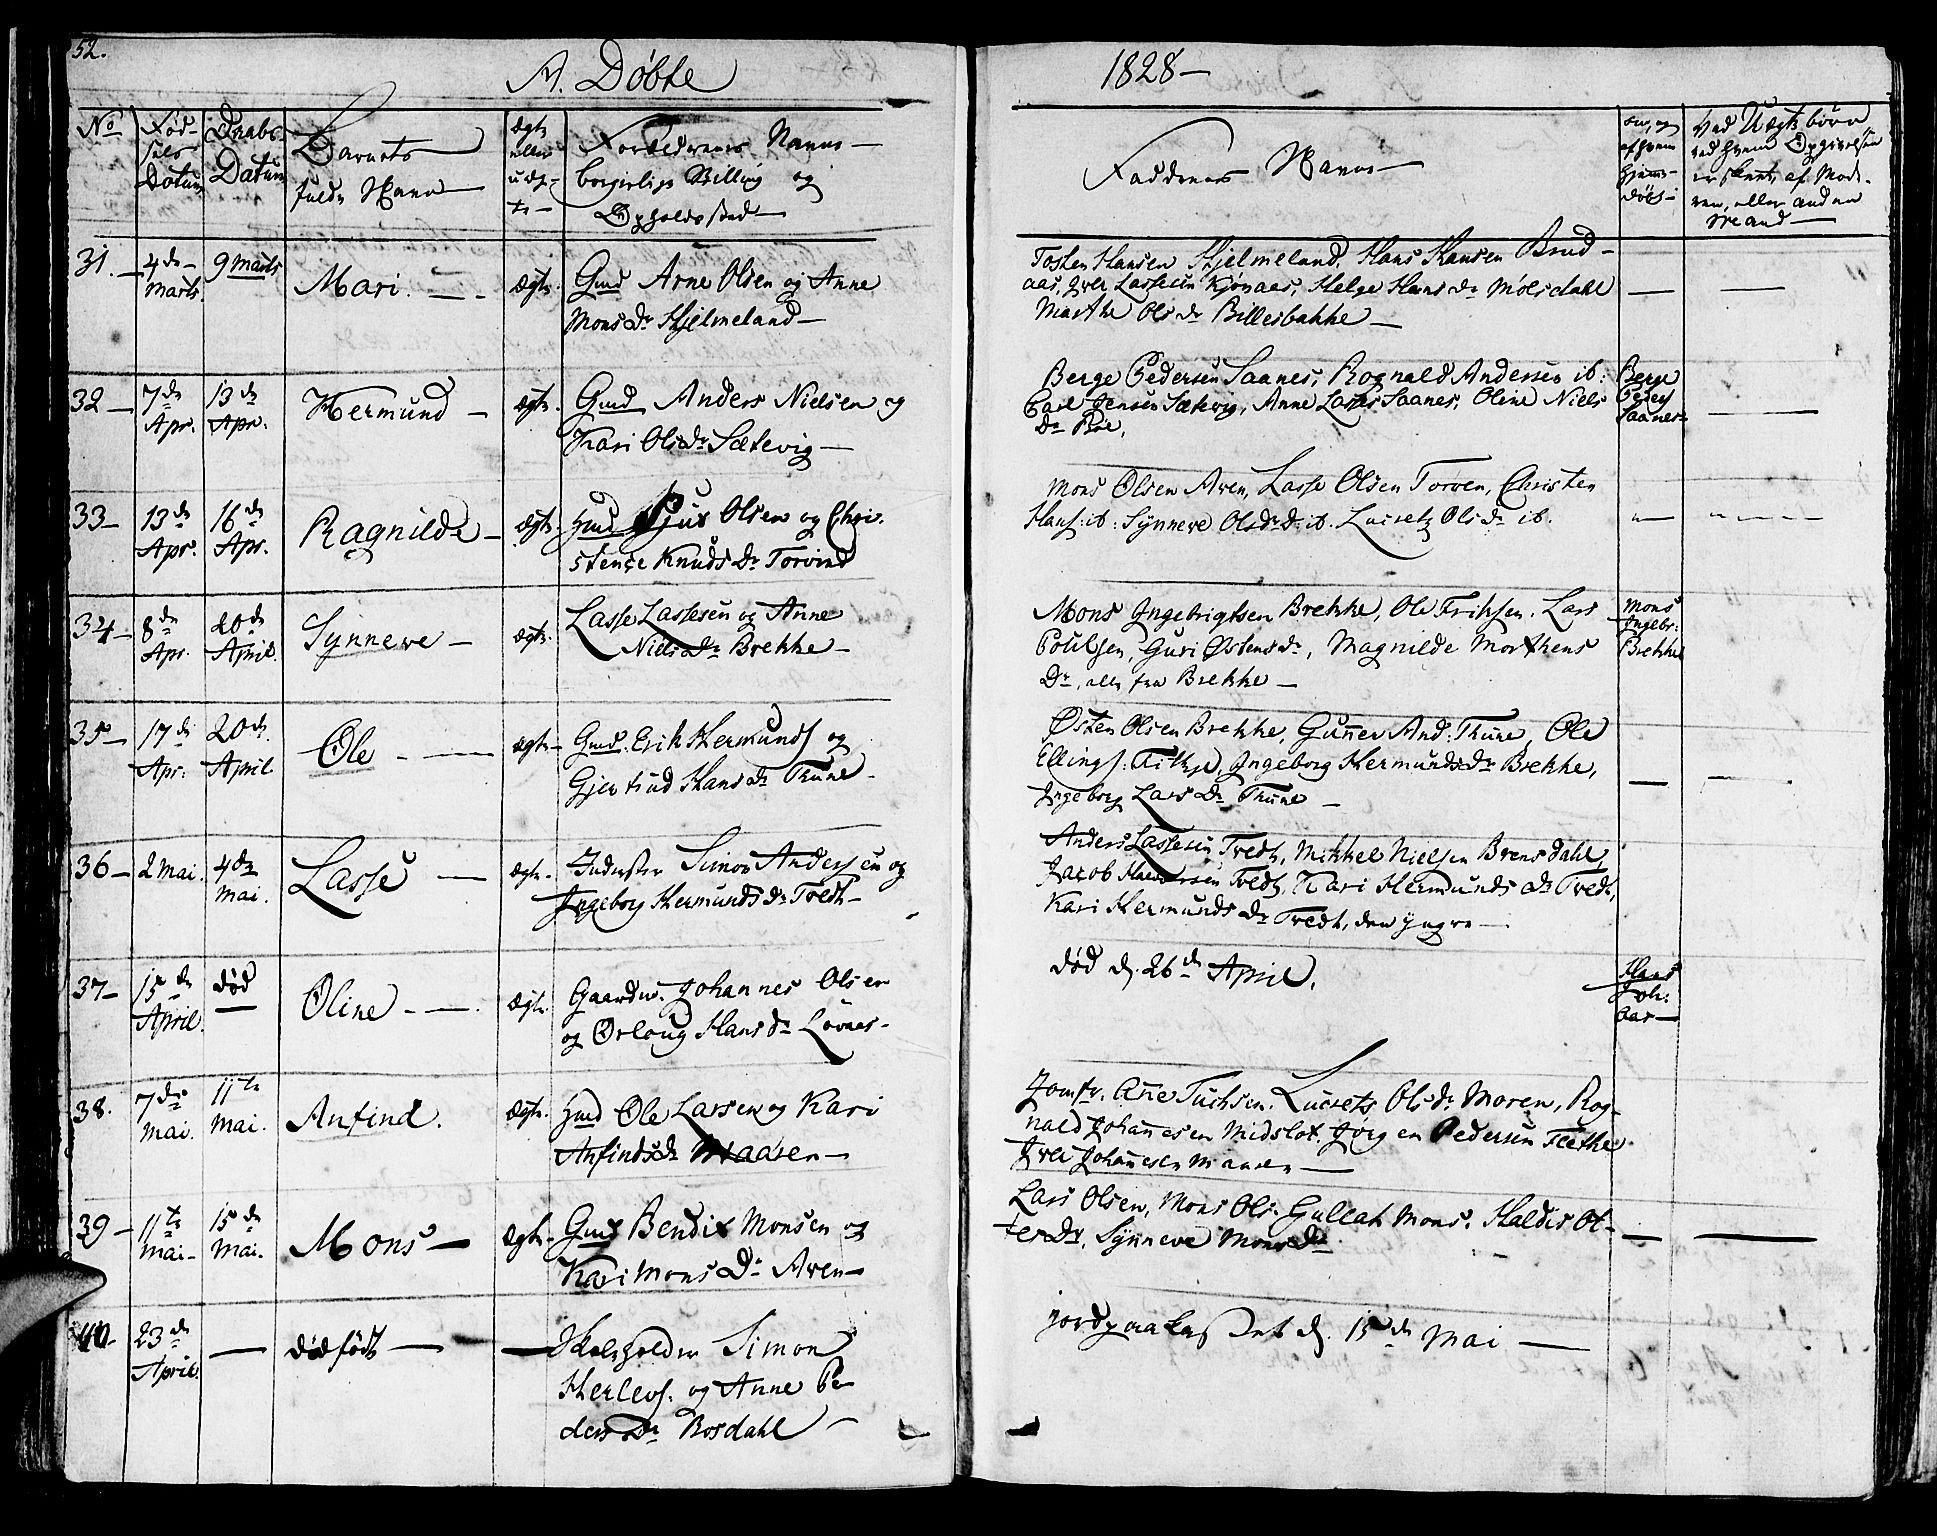 52.
A. Døbte
1828—
No
Fød-
sels
Datum
Daabs
Datum
Barnets
fulde Navn
ægte
eller
uæg-
te
Forældrenes Navne
borgerlige Stilling og
Opholdssted
Faddernes Navne
om, og
af hvem
hjemme-
døbt
Ved Uægte børn
ved hvem Opgivelsen
er skeent, af Mode-
ren, eller anden
Mand
31.
4de
Marts
9 Marts
Mari.
ægte.
Gmd Arne Olsen og Anne
Monsdr Hjelmeland
Tosten Hansen Hjelmeland, Hans Hansen Brud-
aas, Iver Lassesen Kjønaas, Helge Hans dr Mølsdahl
Marthe Ols dr Billesbakke
32
7de
Apr.
13de
Apr.
Hermund
ægte.
Gmd Anders Nielsen og
Kari Olsdr Sætevig
Berge Pedersen Saanes, Rognald Andersen ib:
Carl Jensen Sætevig, Anne Lasses Saanes, Oline Niels
Dr Röe,
Berge
Peders
Saanes
33
13de
Apr.
16de
Apr.
Ragnilde
ægte.
Hmd Sjur Olsen og Chri-
stence Knuds Dr Torvind
Mons Olsen Aren, Lasse Olsen Torven, Christen
Hans: ib: Synneve Olsdr d: ib. Lucretz Ols dr ib.
34
8de
Apr.
20de
April.
Synneve
ægte.
Lasse Lassesen og Anne
Niels Dr Brekke
Mons Ingebrigtsen Brekke, Ole Eriksen. Lars
Poulsen, Guri Østens dr, Magnilde Morthens
Dr, alle fra Brekke
Mons
Ingebr:
Brekke
35
17de
Apr:
20de
April
Ole
ægte
Gmd. Erik Hermunds og
Gjertrud Hans dr Thune
Østen Olsen Brekke, Gunner And: Thune, Ole
Ellings: , Ingeborg Hermundsdr Brekke,
Ingeborg Lars Dr Thune
36
2 Mai.
4de
Mai.
Lasse
ægte.
Inderster Simon Andersen og
Ingeborg Hermundsdr Tredt
Anders Lassesen Tredt, Mikkel Nielsen Brensdahl,
Jacob Tredt, Kari Hermunds dr Tredt,
Kari Hermunds dr Tredt, den yngre
37
15de
April.
død
Oline
ægte.
Gaardm. Johannes Olsen
og Ørlaug Hans dr Løvnes
død d. 26de April.
Hans
Joh:
aar
38.
7de
Mai.
11te
Mai.
Anfind.
ægte.
Hmd Ole Larsen og Kari
Anfindsdr Maaren
Jomfr. Ane Fuchsen. Lucrets Ols dr Moren, Rog-
nald Johannesen Midslot. Jørgen Pedersen Flethe
Iver Johannesen Maaren
39
11te
Mai
15de
Mai.
Mons
ægte
Gmd Bendix Monsen og
Kari Mons Dr Aren
Lars Olsen, Mons Ols. Gullak Mons. Haldis Ot-
ters Dr. Synneve Mons Dr
40
23de
April
dødfødt
Skoleholder Simon
Herlevs. og Anne Pe-
ders Dr Bosdahl
jordpaakastet d. 15de Mai